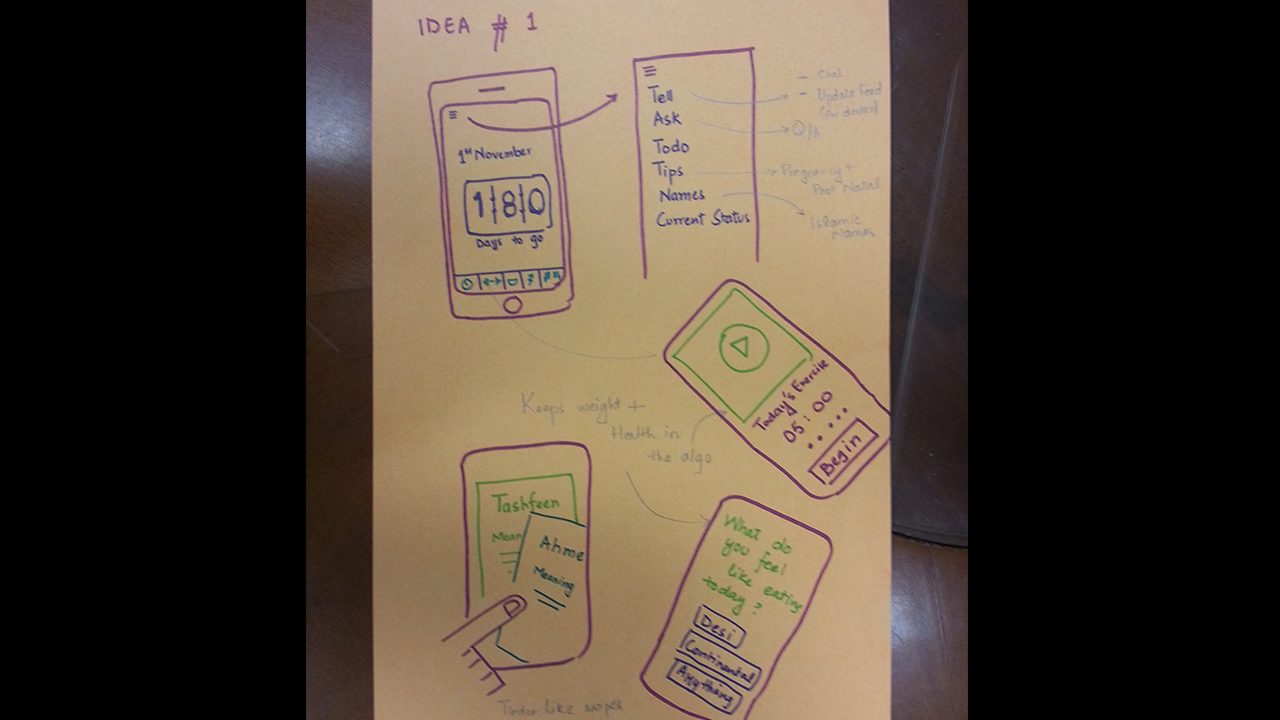 IDEA # 1
1st November
180
Days to go
Tell
Ask
Todo
Tips
Names
Current Status
- Chat
- Update Feed
(for doctor)
Q/A
Pregnancy +
Post Natal
Islamic
Names
Today's Exercise
05:00
Begin
Keeps weight +
Health in
the algo
Tashfeen
Mean
Ahme
Meaning
Tinder like swipes
What do
you feel
like eating
today?
Desi
Continental
Anything